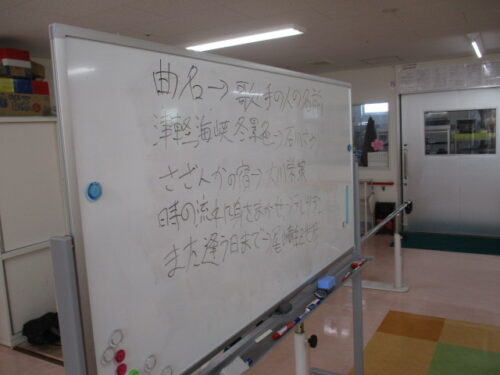 曲名→歌手の人の名前
津軽海峡冬景色→石川さゆり
さざんかの宿→大川栄策
時の流れに身をまかせ→テレサテン
また逢う日まで→尾崎紀世彦